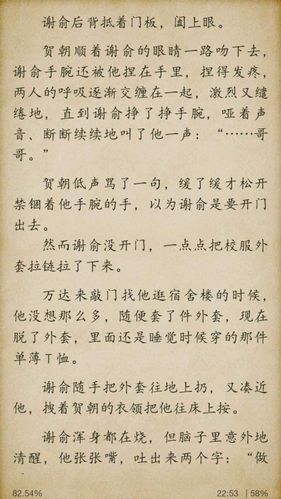 谢俞后背抵着门板，阖上眼。
贺朝顺着谢俞的眼睛一路吻下去，
谢俞手腕还被他捏在手里，捏得发疼，
两人的呼吸逐渐交缠在一起，激烈又缱
绻地，直到谢俞挣了挣手腕，哑着声
音、断断续续地叫了他一声：“……哥
哥。”
贺朝低声骂了一句，缓了缓才松开
禁锢着他手腕的手，以为谢俞是要开门
出去。
然而谢俞没开门，一点点把校服外
套拉链拉了下来。
万达来敲门找他逛宿舍楼的时候，
他没想那么多，随便套了件外套，现在
脱了外套，里面还是睡觉时候穿的那件
单薄T恤。
谢俞随手把外套往地上扔，又凑近
他，拽着贺朝的衣领把他往床上按。
谢俞浑身都在烧，但脑子里意外地
清醒，他张张嘴，吐出来两个字：“做
82.54%
22:53 | 58%